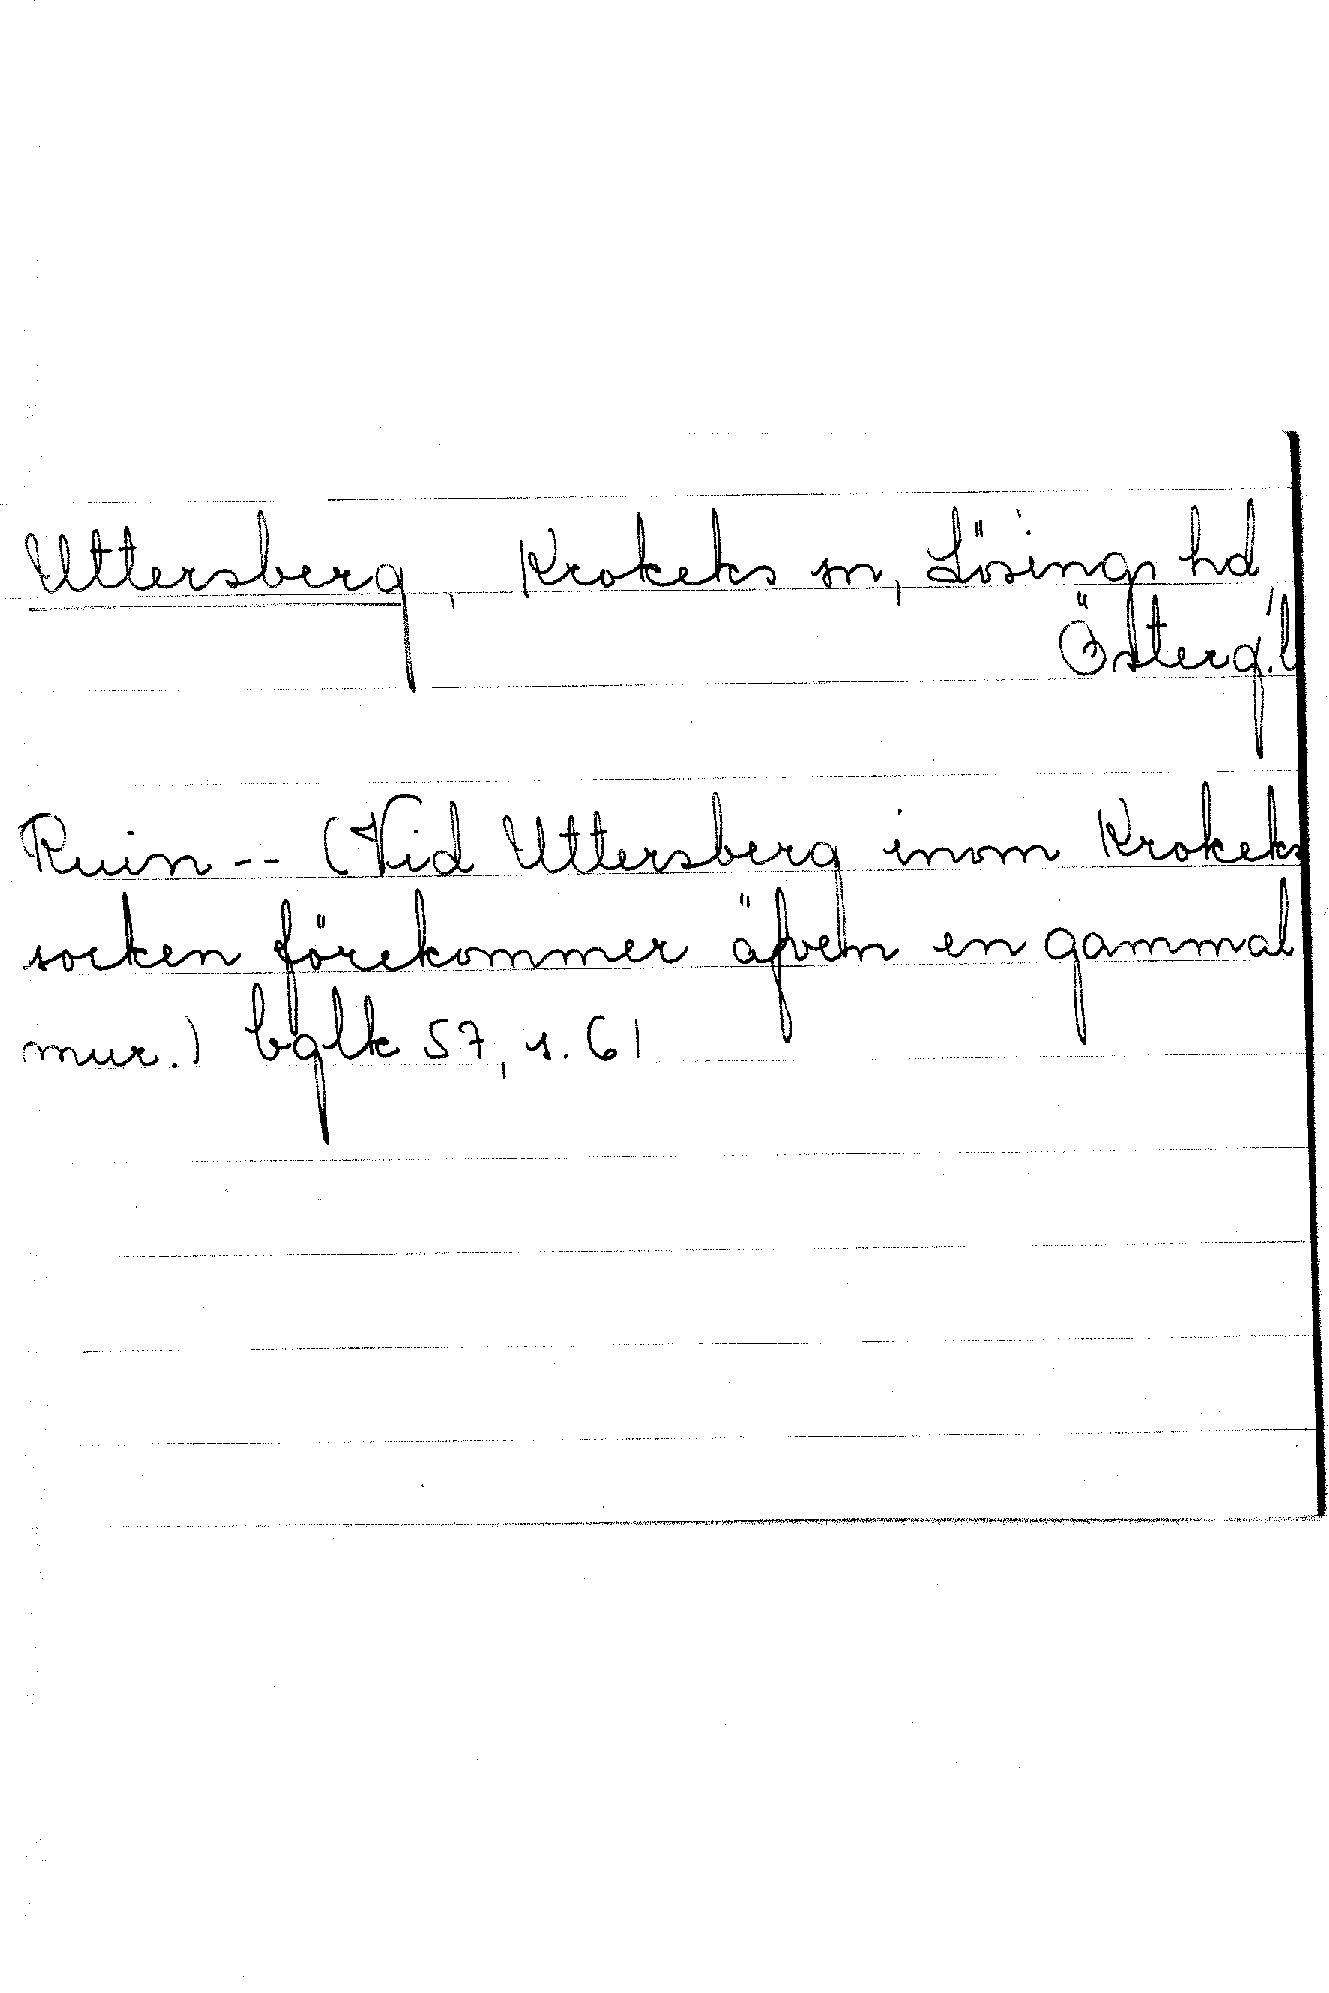 Uttersberg, Krokeks sn, Lösings hd,
Österg.l
Ruin -- (Vid Uttersberg inom Krokeks
socken förekommer äfven en gammal
mur.) bglk 57, s. 61